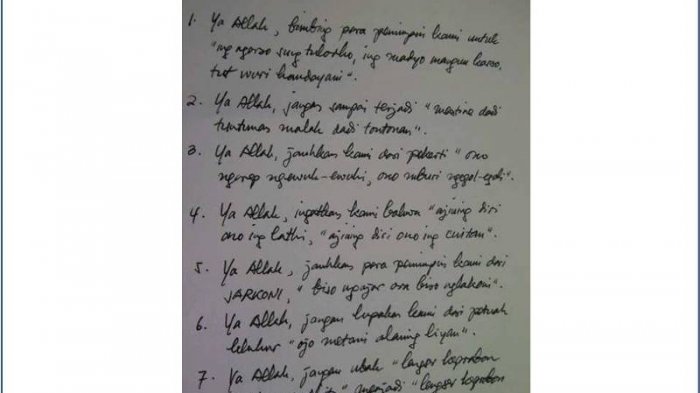 1. Ya Allah, bimbing para pemimpin kami untuk
"ing ngarso sung tulodho, ing madyo mangun karso,
tut wuri handayani".
2. Ya Allah, jangan sampai terjadi "mestine dadi
tuntunan malah dadi tontonan".
3. Ya Allah, jauhkan kami dari pekerti "ono
ngarep ngewuh-ewuhi, ono mburi ngegol-egoli".
4. Ya Allah, ingatkan kami bahwa "ajining diri
ono ing lathi, "ajining diri ono ing
5. Ya Allah, jauhkan para pemimpin kami dari
JARKONI, "biso ngajar ora biso nglakoni".
6. Ya Allah, jangan lupakan kami dari petuah
leluhur "ojo metani alaning liyan".
7. Ya Allah, jangan ubah "lengser keprabon
menjadi "lengser keprabon